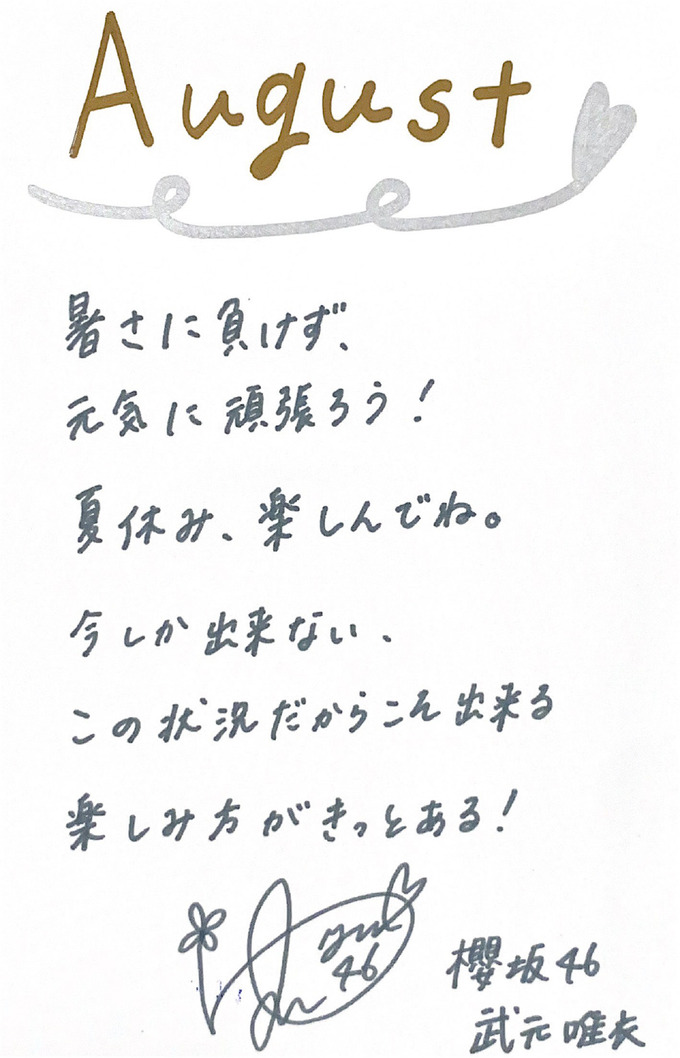 August
暑さに負けず、
元気に頑張ろう！
夏休み、楽しんでね。
今しか出来ない、
この状況だからこそ出来る
楽しみ方がきっとある！
yui
46
櫻坂46
武元唯衣